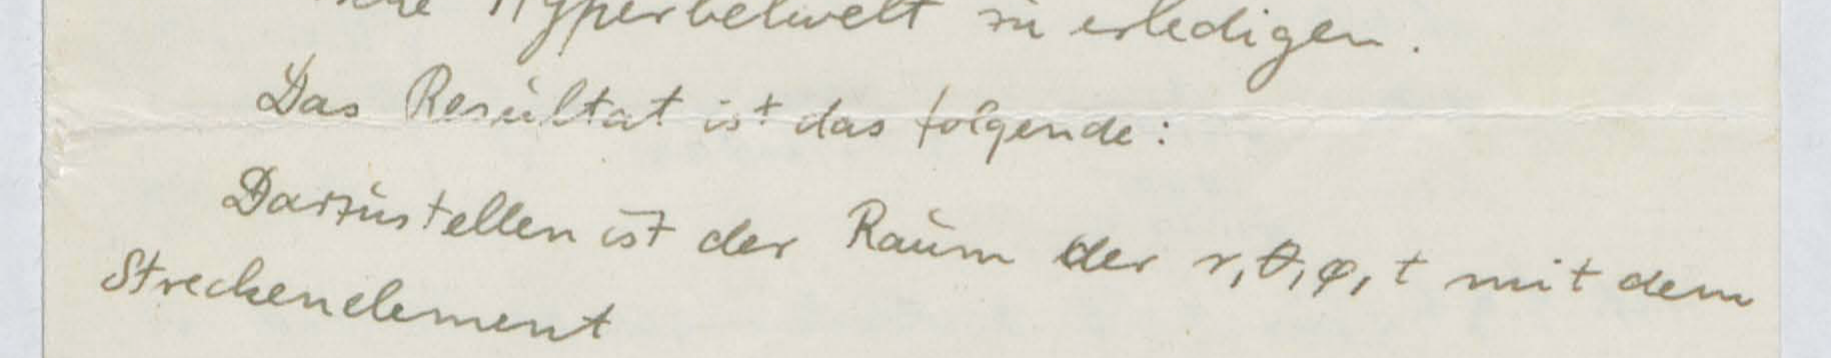 Hyperbelwelt zu erledigen.
Das Resultat ist das folgende:
Darzustellen ist der Raum der r, θ, φ, t mit dem
Streckenelement